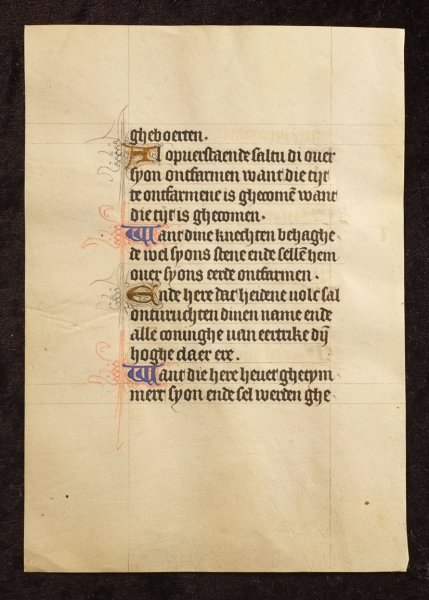 gheboerten.
Al opuerstaende saltu di ouer
syon ontfarmen want die tijt
te ontfarmene is ghecomē want
die tijt is ghecomen.
Want dine knechten behaghe
de wel syons stene ende sellē hem
ouer syons eerde ontfarmen.
Ende here dat heidene volc sal
ontvruchten dinen name ende
alle coninghe van eertrike dij
hoghe claer ere.
Want die here heuet ghetym
mert syon ende sel werden ghe